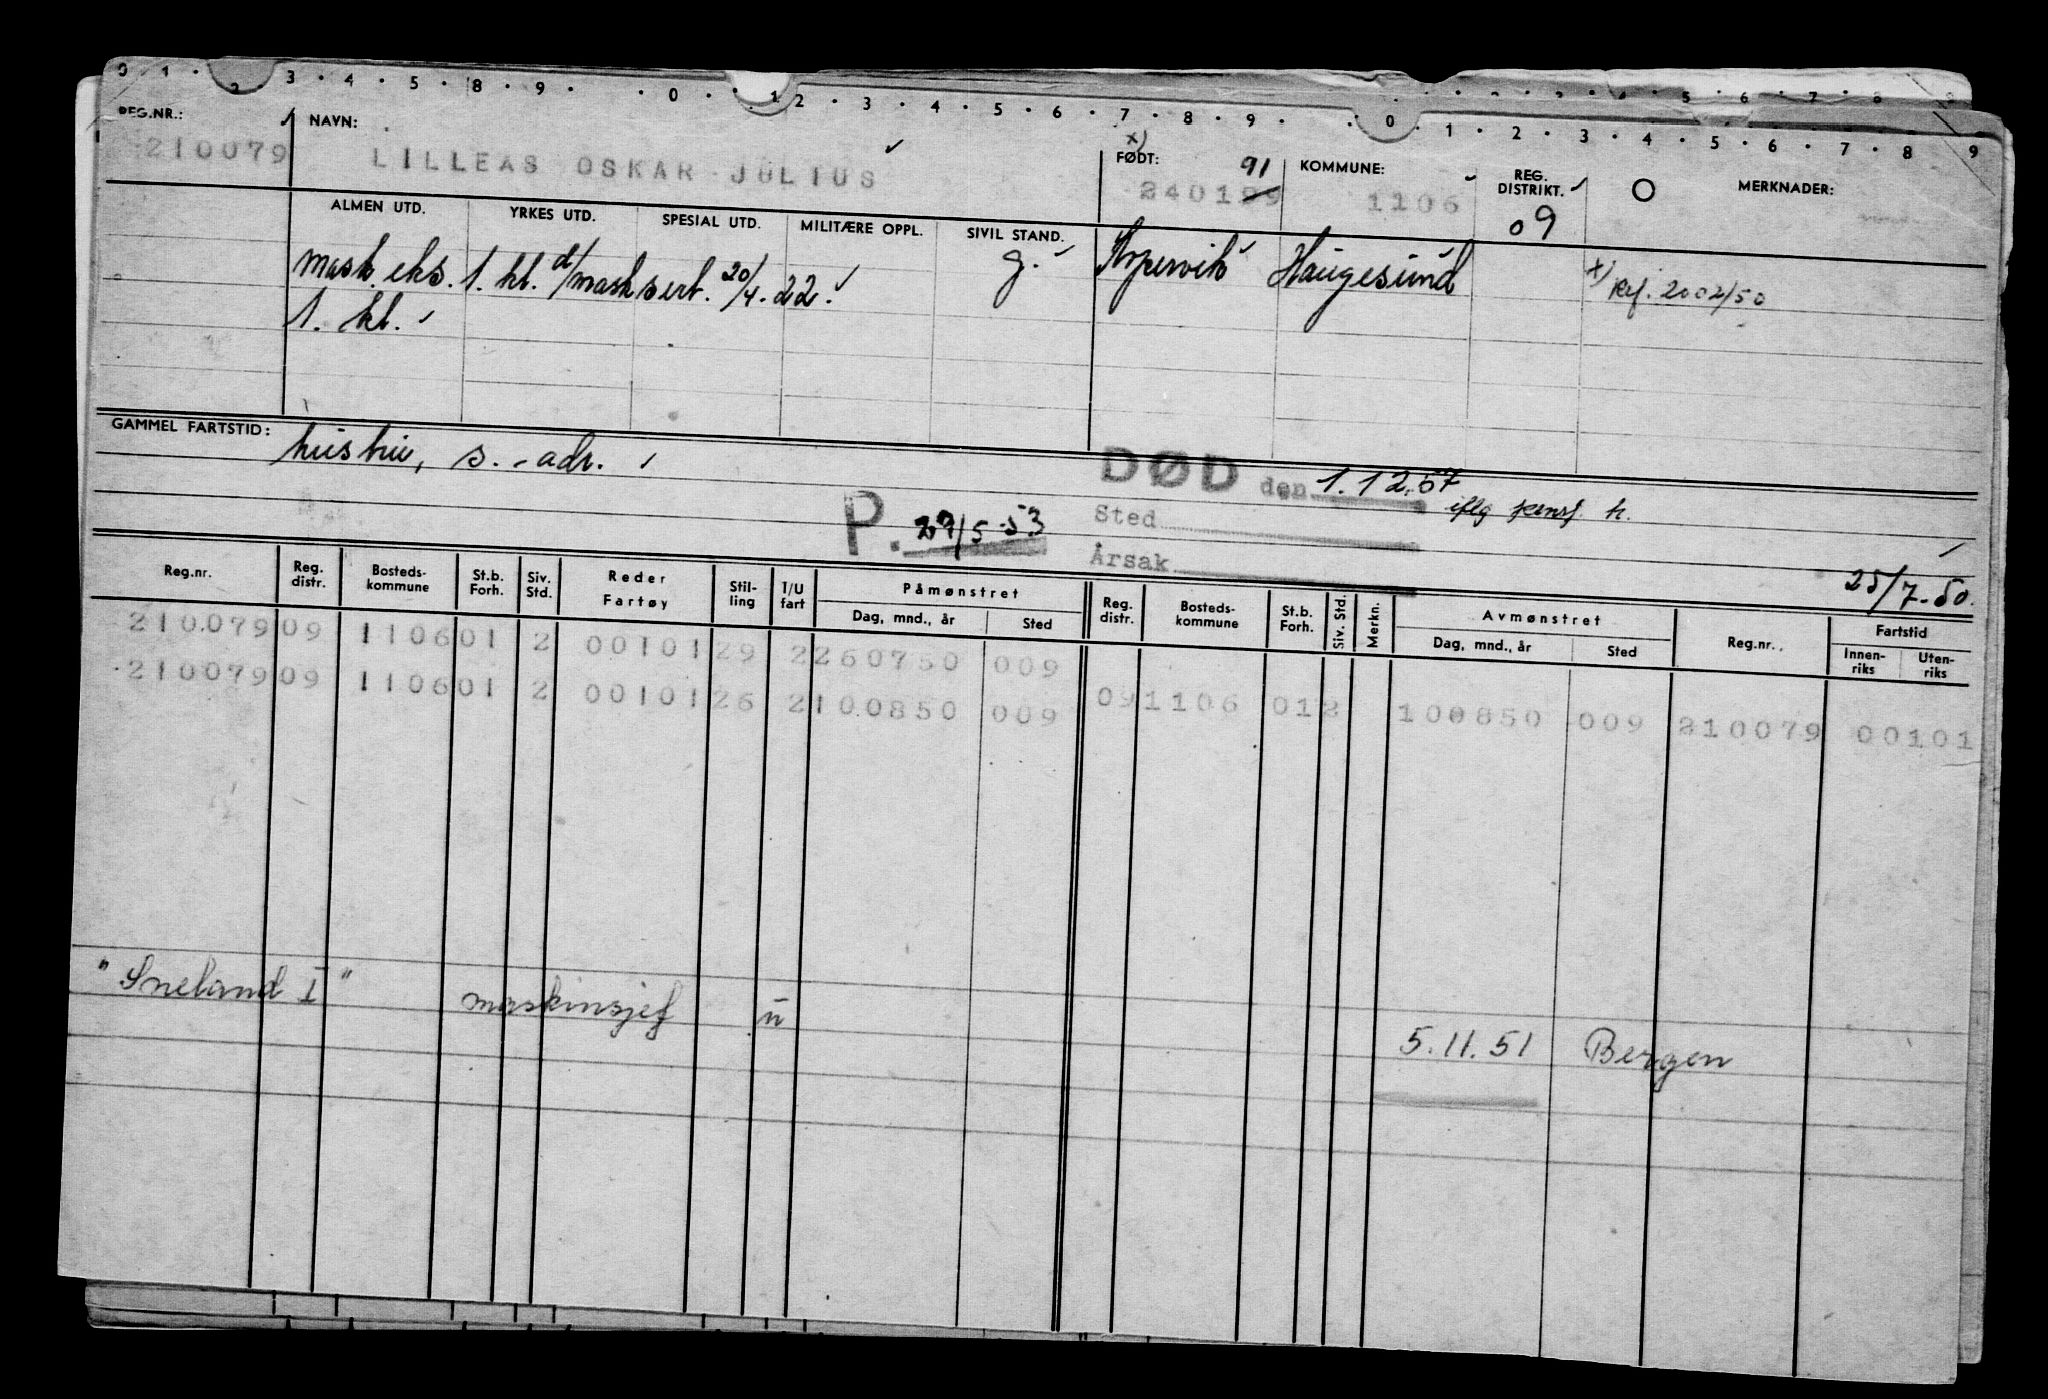 0 1 · 2 3 · 4 · 5 · 8 · 9 · · 0 · · 1 2 · 3 · 4 · 5 · 6 · 7 · 8 · 9 · · 0 · 1 · 2 · 3 · 4 · 5 · 6 · 7 · 8 9
REG.NR.: NAVN: x) FØDT: 91 KOMMUNE: REG. DISTRIKT. O MERKNADER:
210079 LILLEAS OSKAR JULIUS 240189 1106 09
ALMEN UTD. YRKES UTD. SPESIAL UTD. MILITÆRE OPPL. SIVIL STAND.
mask.eks. 1. kl. d/mask sert. 20/4.22. g. Kopervik Haugesund x) Ref. 2002/50
1. kl.
GAMMEL FARTSTID: hustru, s. - adr.
DØD den 1.12.57
iflg pensj. h.
P. 29/5-53 Sted
Årsak
25/7-50.
Reg.nr. Reg. distr. Bosteds-kommune St.b. Forh. Siv. Std. Reder Fartøy Stil-ling I/U fart Påmønstret Reg. distr. Bosteds-kommune St.b. Forh. Siv. Std. Merkn. Avmønstret Reg.nr. Fartstid
Dag, mnd., år Sted Dag, mnd., år Sted Innen-riks Uten-riks
210079 09 1106 01 2 00101 29 2 260750 009
210079 09 1106 01 2 00101 26 2 100850 009 09 1106 01 2 100850 009 210079 00101
"Sneland I" maskinsjef u 5.11.51 Bergen